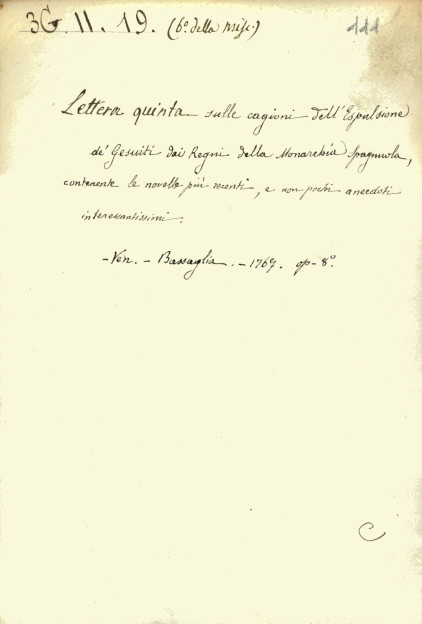 3G. 11. 19. (6º. della misc.)
111
Lettera quinta sulle cagioni dell'Espulsione
de' Gesuiti dai Regni della Monarchia Spagnuola,
contenente le novelle più recenti, e non pochi anecdoti
interessantissimi.
- Ven. - Bassaglia. - 1767. op - 8º.
C